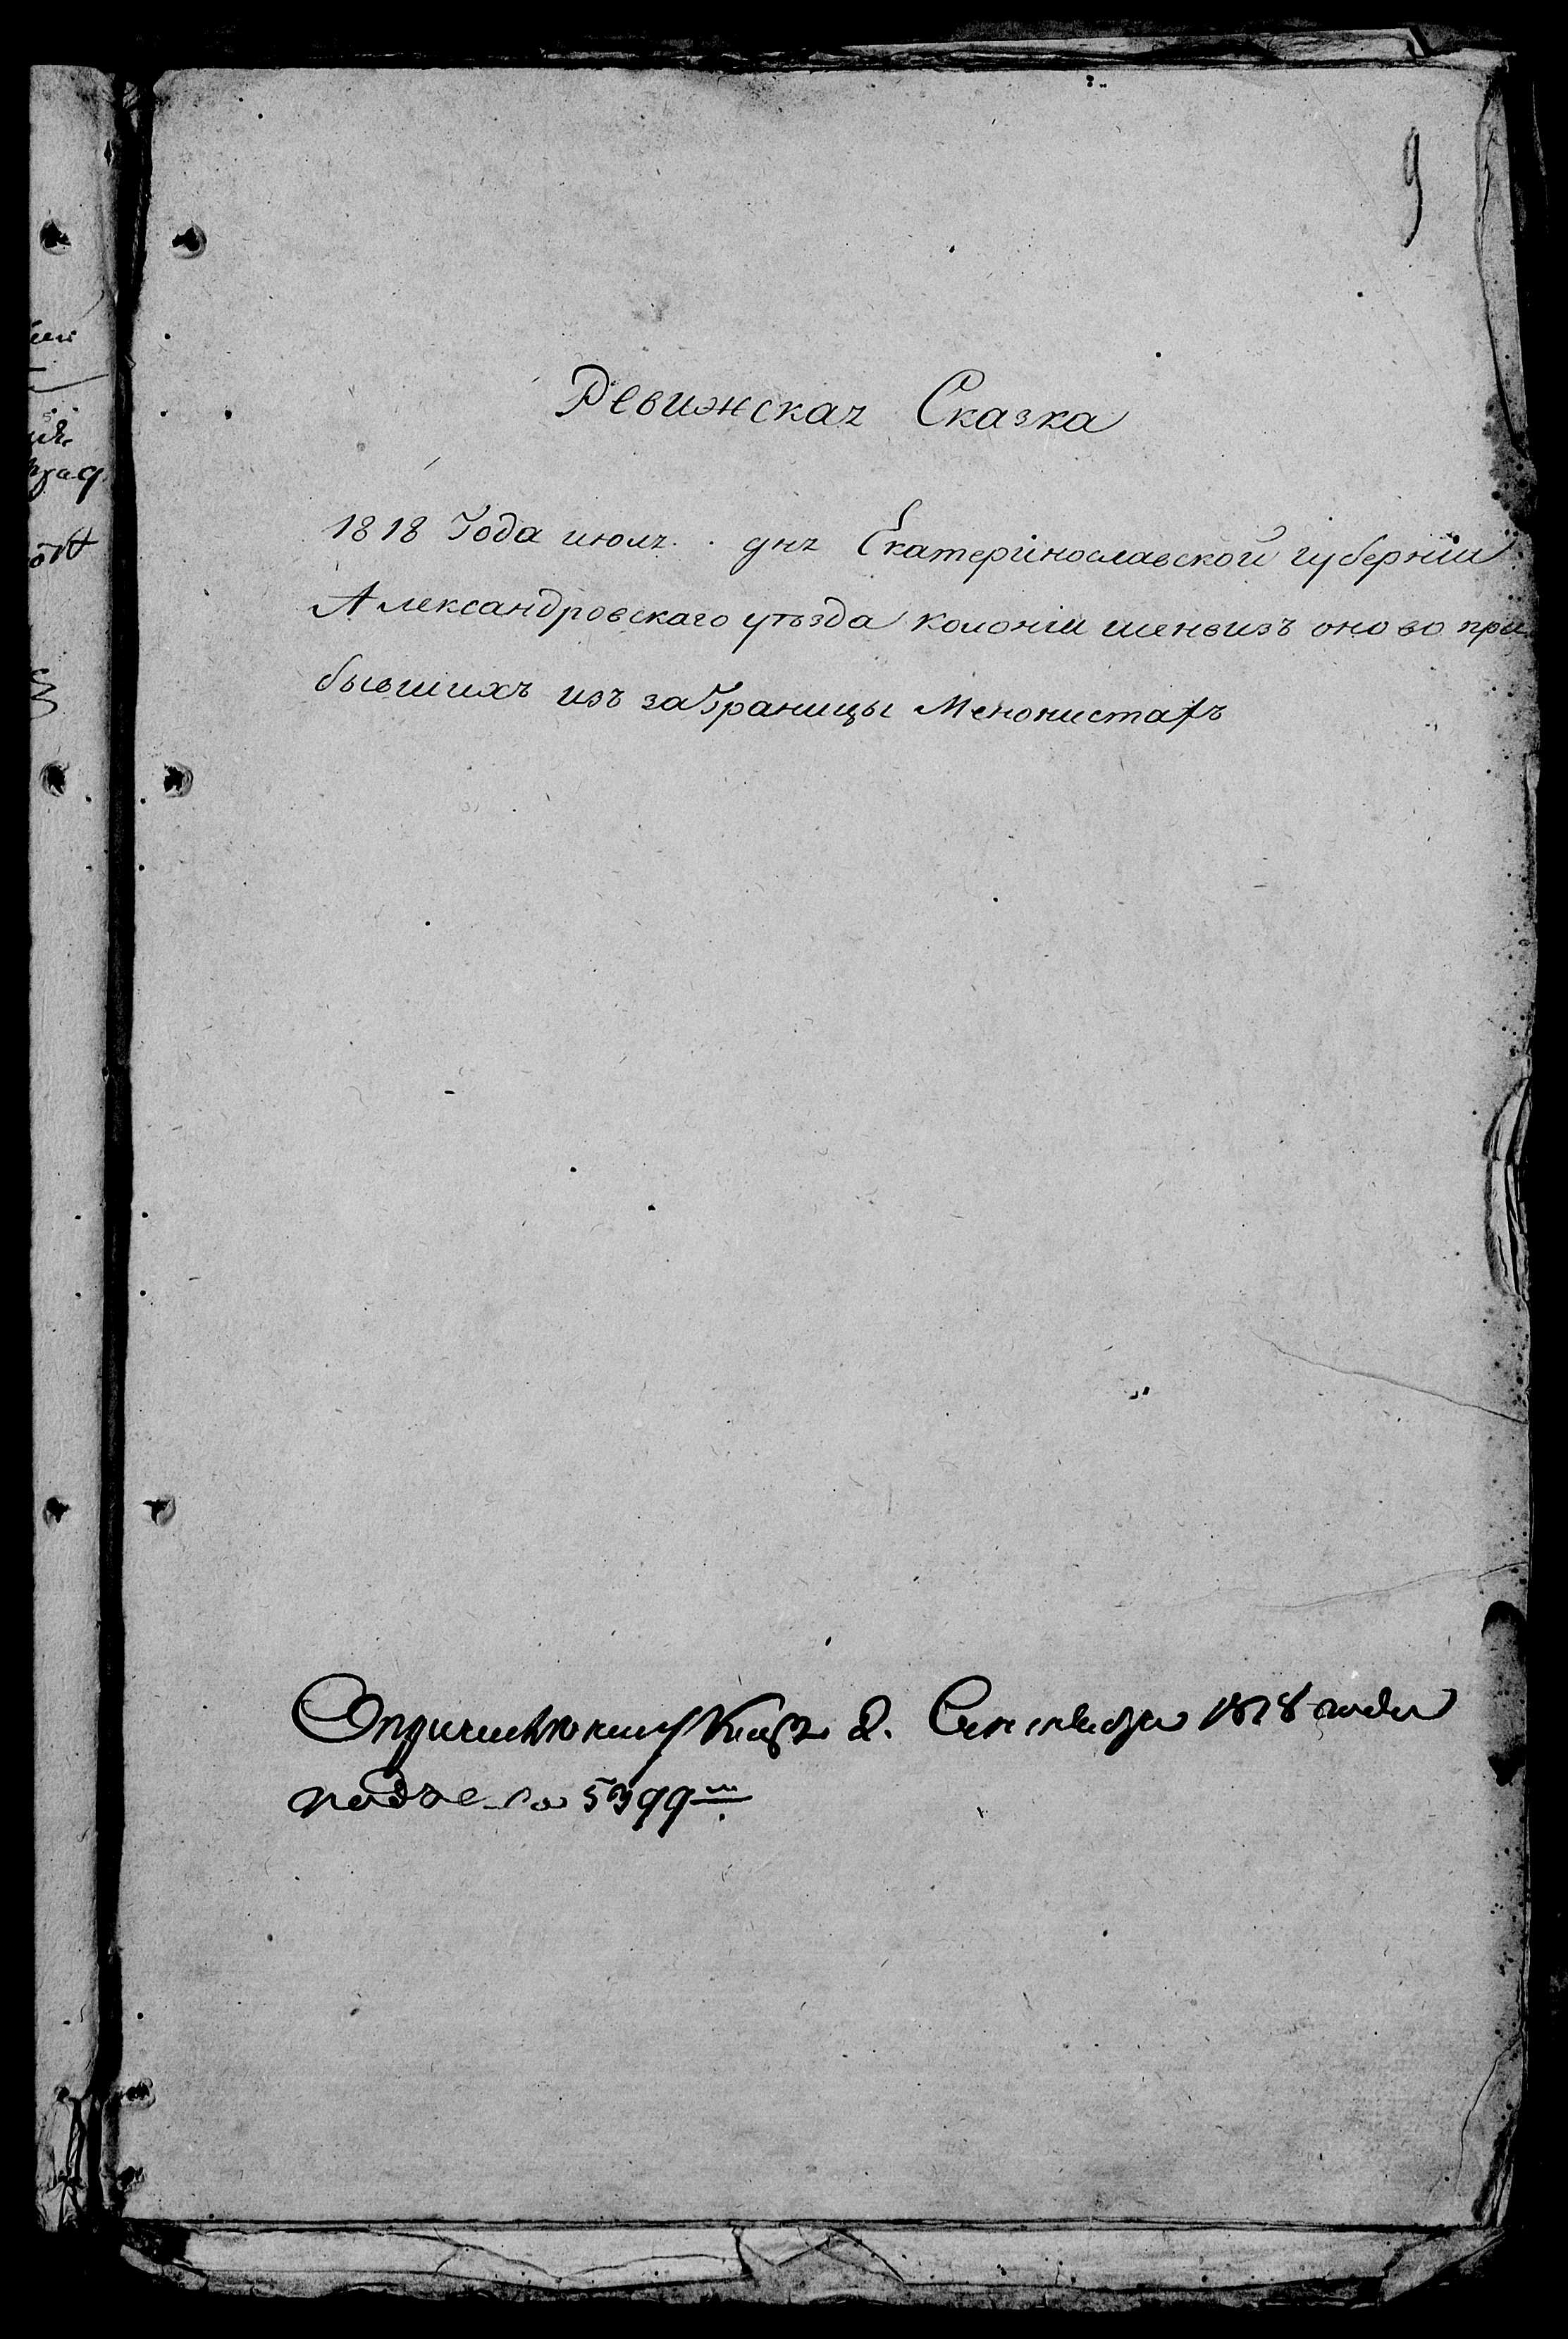 9
Ревижская Сказка
1818 Года июля . дня Екатерінославской губерніи
Александровскаго уѣзда колоніи шенвизъ оново при
бывшихъ изъ заГраницы Менонистахъ
2. Сентября 1818 года
5399